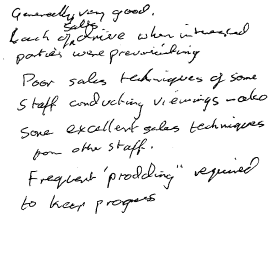 Generally very good.
Lack of sales drive when interested
parties were previewing
Poor sales techniques of some
staff conducting viewings - also
some excellent sales techniques
from other staff.
Frequent "prodding" required
to keep progress